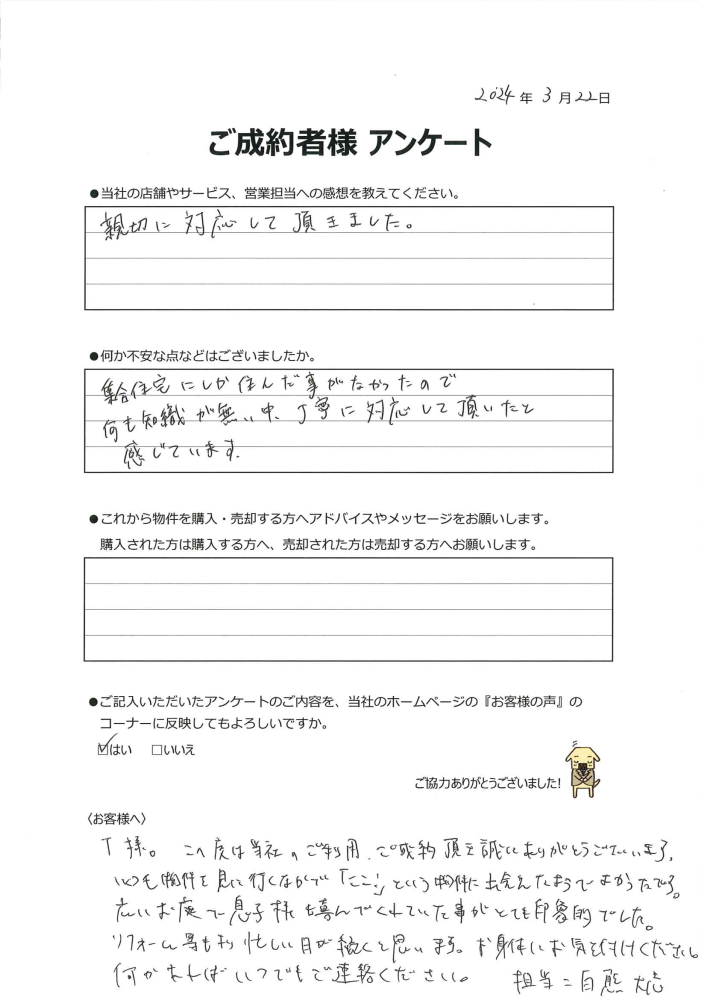 2024年 3月22日
ご成約者様 アンケート
●当社の店舗やサービス、営業担当への感想を教えてください。
親切に対応して頂きました。
●何か不安な点などはございましたか。
集合住宅にしか住んだ事がなかったので
何も知識が無い中、丁寧に対応して頂いたと
感じています。
●これから物件を購入・売却する方へアドバイスやメッセージをお願いします。
購入された方は購入する方へ、売却された方は売却する方へお願いします。
●ご記入いただいたアンケートのご内容を、当社のホームページの『お客様の声』の
コーナーに反映してもよろしいですか。
☑はい □いいえ
ご協力ありがとうございました!
〈お客様へ〉
T様。この度は当社のご利用、ご成約頂き誠にありがとうございます。
いつも物件を見に行くなかで「ここ!」という物件に出会えたようでよかったです。
広いお庭で息子様も喜んでくれていた事がとても印象的でした。
リフォーム等もあり忙しい日が続くと思います。お身体にお気を付けください。
何かあればいつでもご連絡ください。 担当:白熊